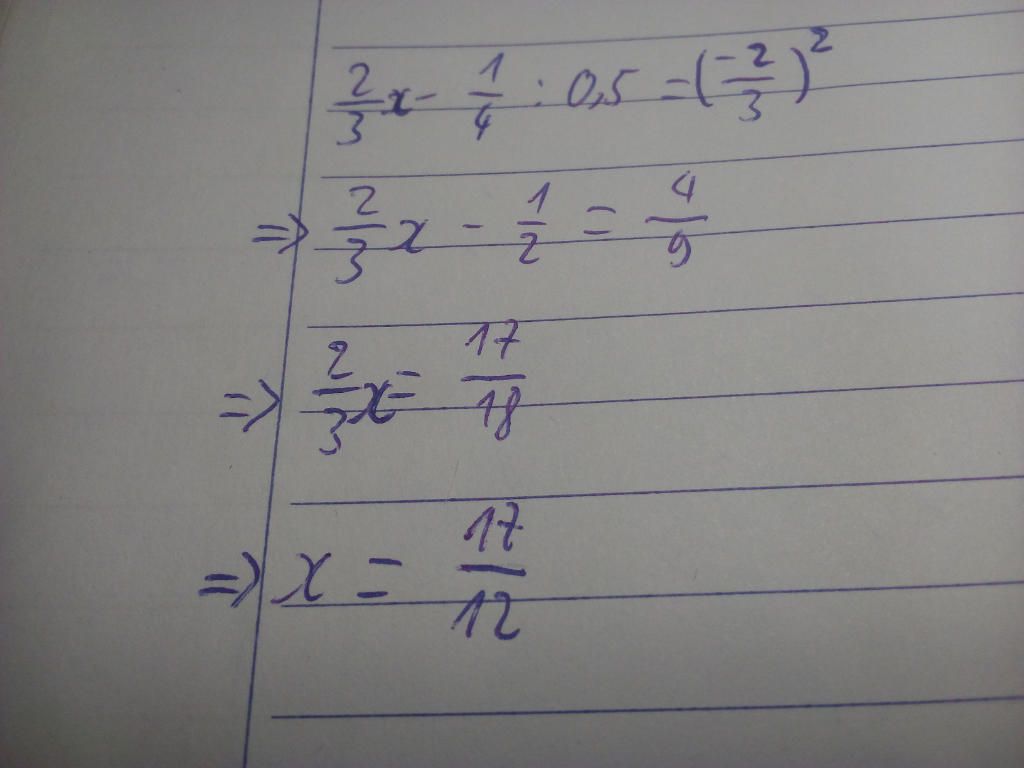 2/3 x - 1/4 : 0,5 = (-2/3)²
=> 2/3 x - 1/2 = 4/9
=> 2/3 x = 17/18
=> x = 17/12